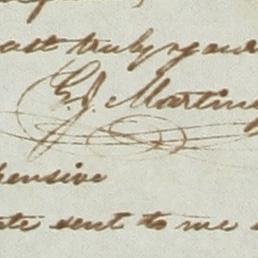 truly your
E. J. Martin
hensive
te sent to me